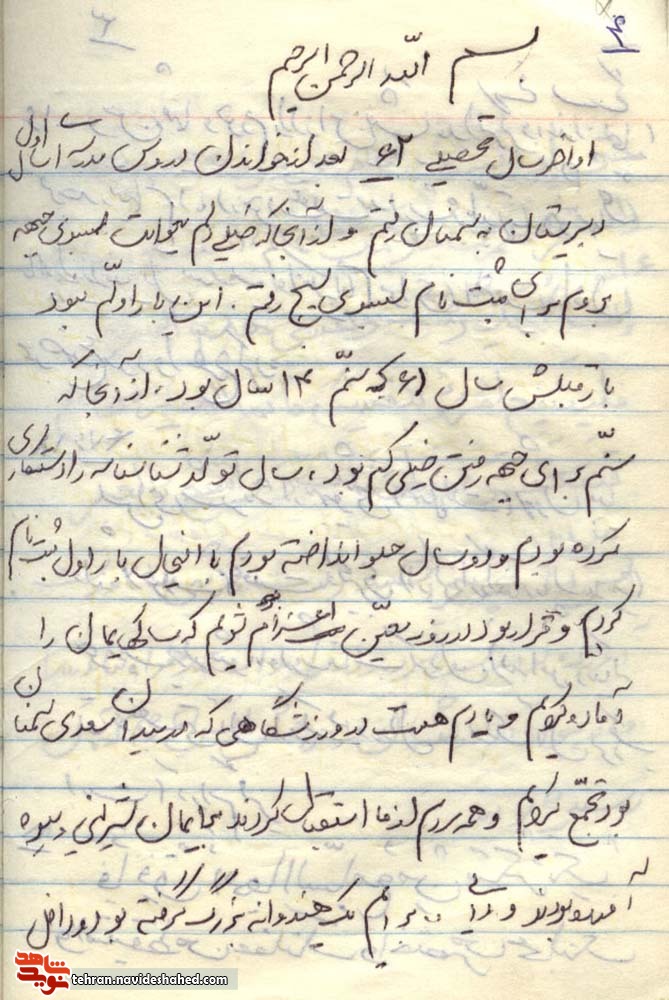 ۴
بسم الله الرحمن الرحیم
اواخر سال تحصیلی ۶۲ بعد از خواندن دروس مدرسه سال اول
دبیرستان به سمنان رفتم و از آنجا که خیلی دلم میخواست بسوی جبهه
بروم برای ثبت نام بسوی بسیج رفتم. این بار اولم نبود
بار قبلش سال ۶۱ که سنّم ۱۴ سال بود، از آنجا که
سنّم برای جبهه رفتن خیلی کم بود، سال تولّد شناسنامه را دستکاری
کرده بودم و دو سال جلو انداخته بودم با اینحال بار اول ثبت نام
کردم و قرار بود در روز معیّن اعزام شویم که ساکهایمان را
آماده کردیم و یادم هست در ورزشگاهی که در میدان سعدی سمنان
بود تجمّع کردیم و همه مردم از ما استقبال کردند برایمان شیرینی و میوه
آورده بودند و برایم یک هندوانه بزرگ گرفته بود و داخل
نوید شاهد
tehran.navideshahed.com